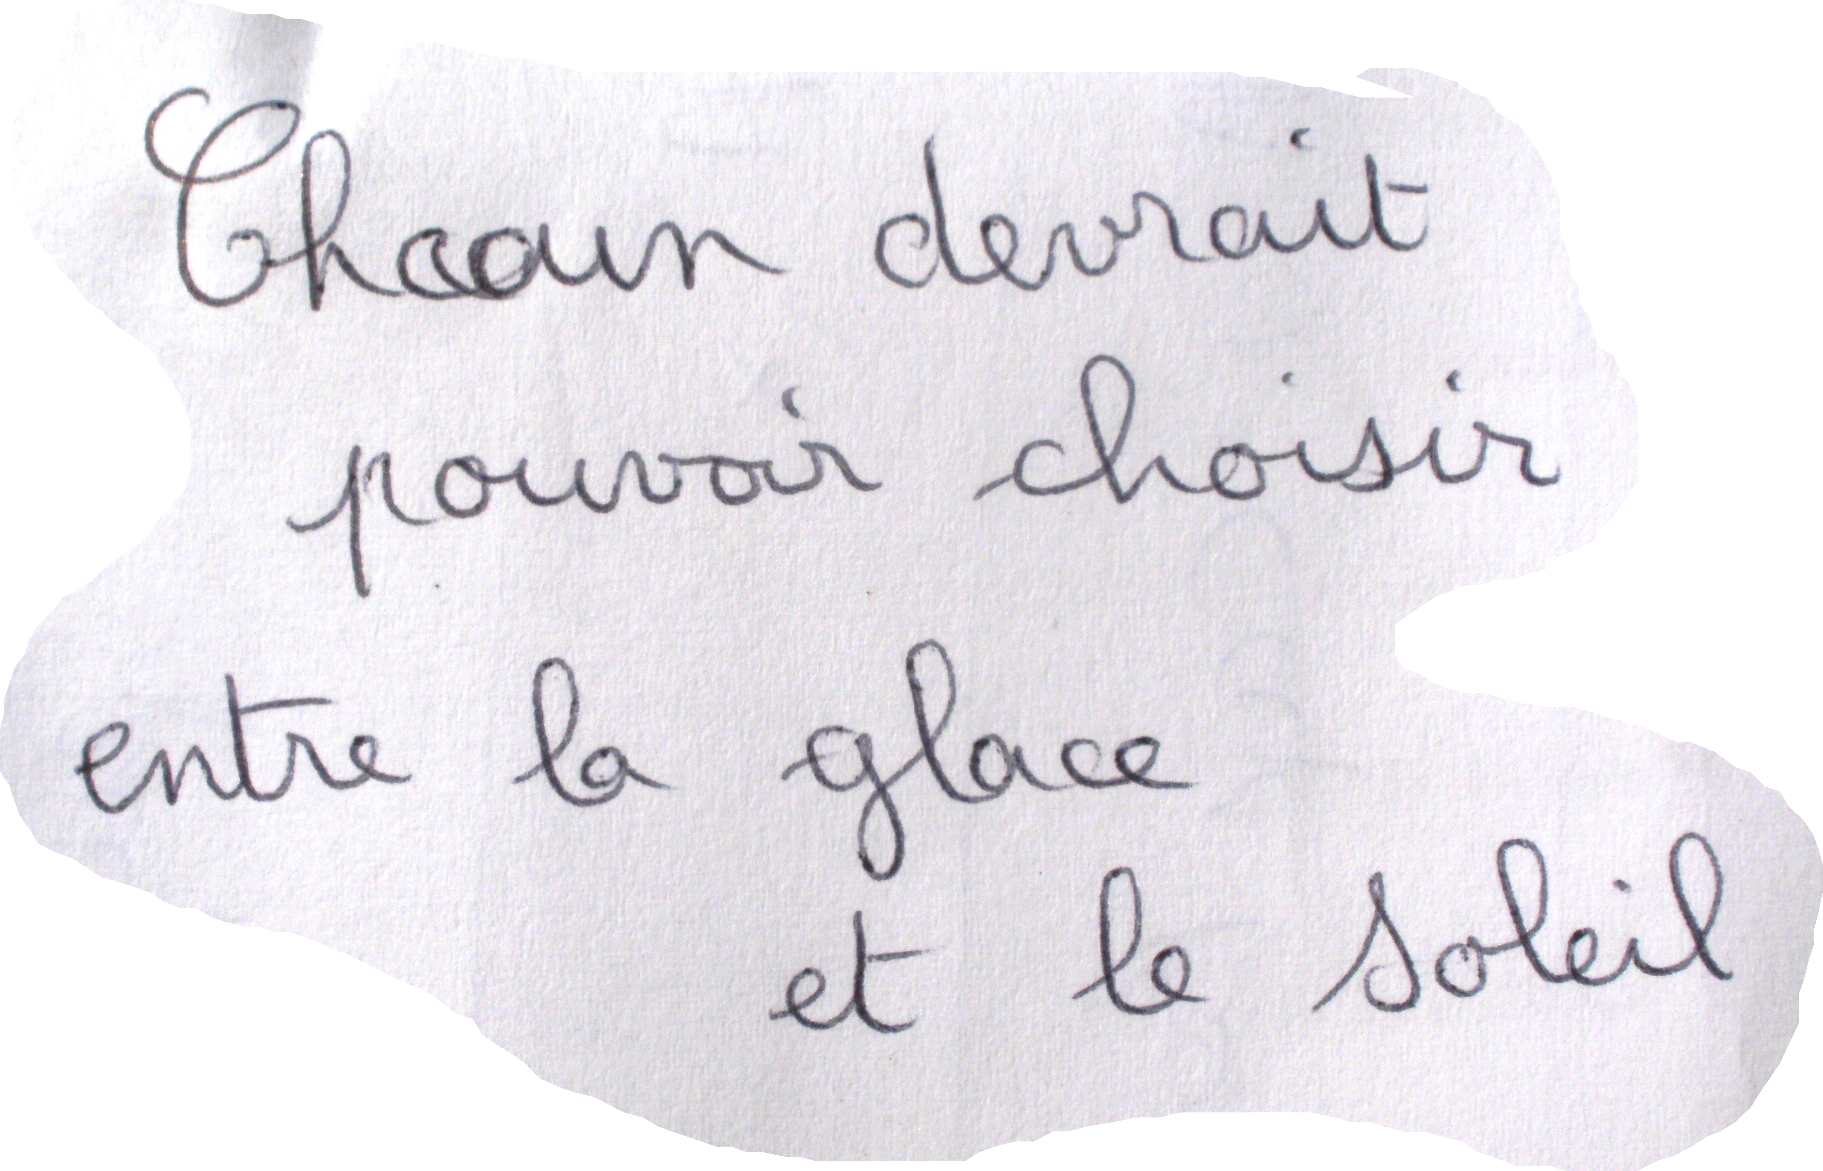 Chacun devrait
pouvoir choisir
entre la glace
et le soleil